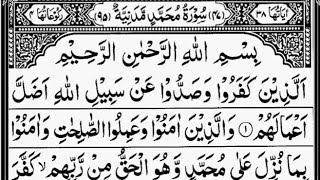 اٰیَاتُهَا ۳۸ (۴۷) سُوْرَةُ مُحَمَّدٍ مَّدَنِیَّةٌ (۹۵) رُكُوْعَاتُهَا ۴
بِسْمِ اللّٰهِ الرَّحْمٰنِ الرَّحِیْمِ
اَلَّذِیْنَ كَفَرُوْا وَصَدُّوْا عَنْ سَبِیْلِ اللّٰهِ اَضَلَّ
اَعْمَالَهُمْ ۱ وَالَّذِیْنَ اٰمَنُوْا وَعَمِلُوا الصّٰلِحٰتِ وَاٰمَنُوْا
بِمَا نُزِّلَ عَلٰی مُحَمَّدٍ وَّهُوَ الْحَقُّ مِنْ رَّبِّهِمْ ۙ كَفَّرَ